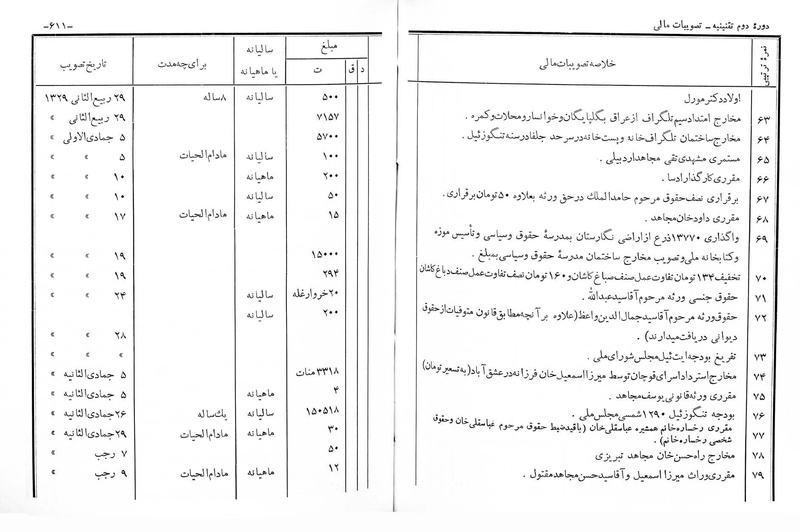 دورهٔ دوم تقنینیه - تصویبات مالی
-۶۱۱-
نمرهٔ ترتیبی
خلاصه تصویبات مالی
مبلغ
ت
ق
د
سالیانه
یا ماهیانه
برای چه مدت
تاریخ تصویب
اولاد دکتر مورل
۵۰۰ سالیانه ۸ ساله ۲۹ ربیع الثانی ۱۳۲۹
۶۳ مخارج امتداد سیم تلگراف از عراق بگلپایگان و خوانسار و محلات و کمره .
۷۱۵۷ ۲۹ ربیع الثانی »
۶۴ مخارج ساختمان تلگراف خانه و پست خانه در سرحد جلفا در سنه تنگوزئیل .
۵۷۰۰ ۵ جمادی الاولی »
۶۵ مستمری مشهدی تقی مجاهد اردبیلی .
۱۰۰ سالیانه مادام الحیات ۵ » »
۶۶ مقرری کارگذار ادسا .
۲۰۰ ماهیانه ۱۰ » »
۶۷ برقراری نصف حقوق مرحوم حامد الملك در حق ورثه بعلاوه ۵۰ تومان برقراری .
۵۰ سالیانه ۱۰ » »
۶۸ مقرری داود خان مجاهد .
۱۵ ماهیانه مادام الحیات ۱۷ » »
۶۹ واگذاری ۱۳۷۷۰ ذرع از اراضی نگارستان بمدرسهٔ حقوق و سیاسی و تأسیس موزه
و کتابخانه ملی و تصویب مخارج ساختمان مدرسهٔ حقوق و سیاسی بمبلغ .
۱۵۰۰۰ ۱۹ » »
۷۰ تخفیف ۱۳۴ تومان تفاوت عمل صنف صباغ کاشان و ۱۶۰ تومان نصف تفاوت عمل صنف دباغ کاشان
۲۹۴ ۱۹ » »
۷۱ حقوق جنسی ورثه مرحوم آقا سید عبدالله .
۲۰ خروار غله سالیانه ۲۴ » »
۷۲ حقوق ورثه مرحوم آقا سید جمال الدین واعظ (علاوه بر آنچه مطابق قانون متوفیات از حقوق
۲۰۰ سالیانه
دیوانی دریافت میدارند) .
۲۸ » »
۷۳ تفریغ بودجه ایت ئیل مجلس شورای ملی .
» » »
۷۴ مخارج استرداد اسرای قوچان توسط میرزا اسمعیل خان فرزانه در عشق آباد (به تسعیر تومان)
۳۳۱۸ منات ۵ جمادی الثانیه »
۷۵ مقرری ورثه قانونی یوسف مجاهد .
۴ ماهیانه ۵ جمادی الثانیه »
۷۶ بودجه تنگوزئیل ۱۲۹۰ شمسی مجلس ملی .
۱۵۰۵۱۸ سالیانه یك ساله ۲۶ جمادی الثانیه »
۷۷ مقرری رخساره خانم همشیره عباسقلی خان (باقید ضبط حقوق مرحوم عباسقلی خان و حقوق
شخصی رخساره خانم) .
۳۰ ماهیانه مادام الحیات ۲۹ جمادی الثانیه »
۷۸ مخارج راه حسن خان مجاهد تبریزی
۵۰ ۷ رجب »
۷۹ مقرری وراث میرزا اسمعیل و آقا سید حسن مجاهد مقتول .
۱۲ ماهیانه مادام الحیات ۹ رجب »